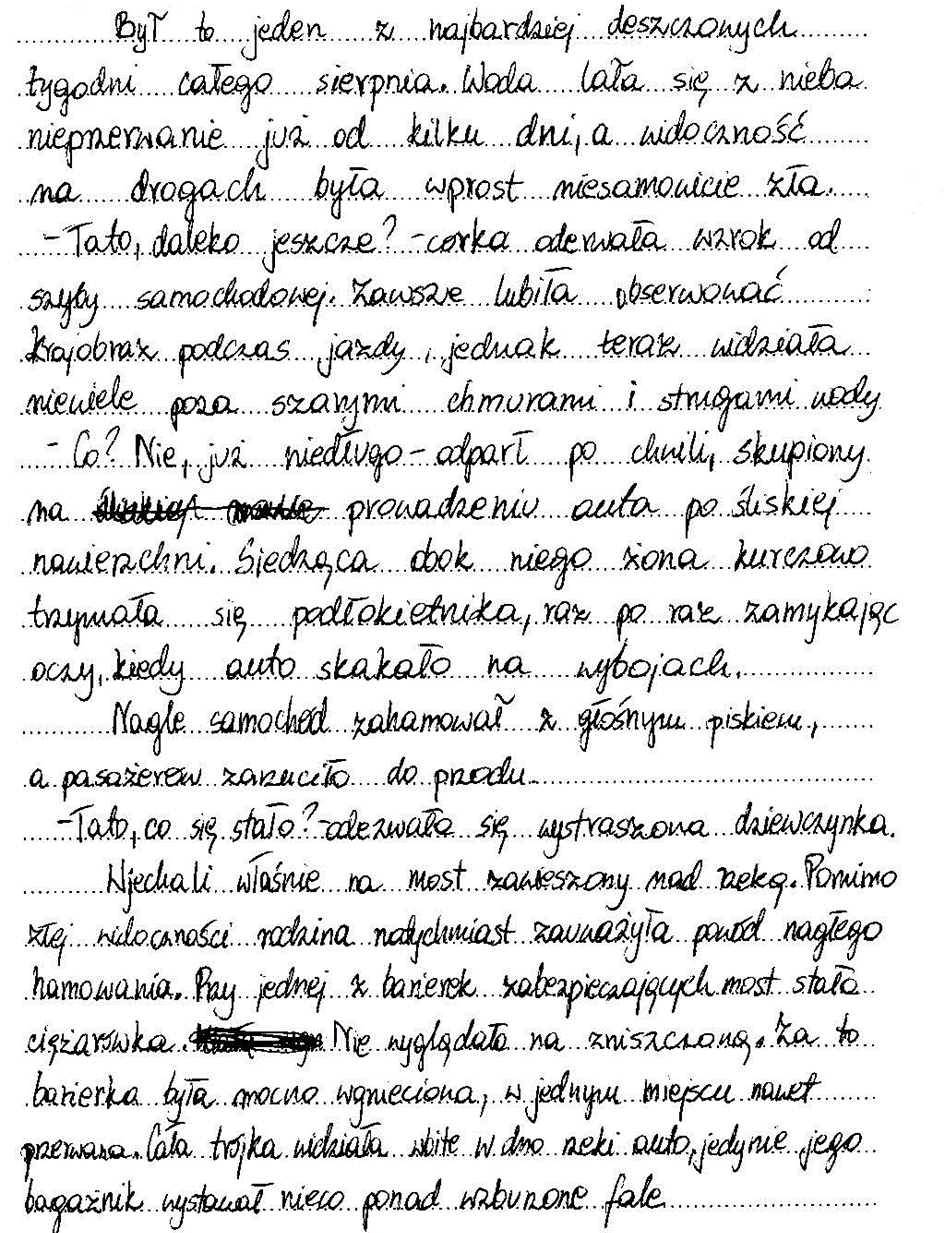 Był to jeden z najbardziej deszczonych
tygodni całego sierpnia. Woda lała się z nieba
nieprzerwanie już od kilku dni, a widoczność
na drogach była wprost niesamowicie zła.
-Tato, daleko jeszcze? -córka oderwała wzrok od
szyby samochodowej. Zawsze lubiła obserwować
krajobraz podczas jazdy, jednak teraz widziała
niewiele poza szarymi chmurami i strugami wody
- Co? Nie, już niedługo - odparł po chwili, skupiony
na prowadzeniu auta po śliskiej
nawierzchni. Siedząca obok niego żona kurczowo
trzymała się podłokietnika, raz po raz zamykając
oczy, kiedy auto skakało na wybojach.
Nagle samochód zahamował z głośnym piskiem,
a pasażerów zarzuciło do przodu.
-Tato, co się stało? -odezwała się wystraszona dziewczynka.
Wjechali właśnie na most zawieszony nad rzeką. Pomimo
złej widoczności rodzina natychmiast zauważyła powód nagłego
hamowania. Przy jednej z barierek zabezpieczających most stała
ciężarówka. Nie wyglądało na zniszczoną. Za to
barierka była mocno wgnieciona, w jednym miejscu nawet
przerwana. Cała trójka widziała wbite w dno rzeki auto, jedynie jego
bagażnik wystawał nieco ponad wzburzone fale